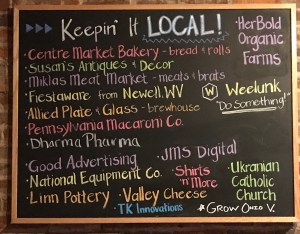 Keepin' It LOCAL!
Centre Market Bakery - bread & rolls
Susan's Antiques & Decor
Miklas Meat Market - meats & brats
Fiestaware from Newell, WV
Allied Plate & Glass - brewhouse
Pennsylvania Macaroni Co.
Dharma Pharma
Good Advertising
National Equipment Co.
Linn Pottery
Valley Cheese
TK Innovations
JMS Digital
Shirts 'n' More
HerBold
Organic
Farms
W Weelunk,
"Do Something!"
Ukranian
Catholic
Church
#Grow Ohio V.